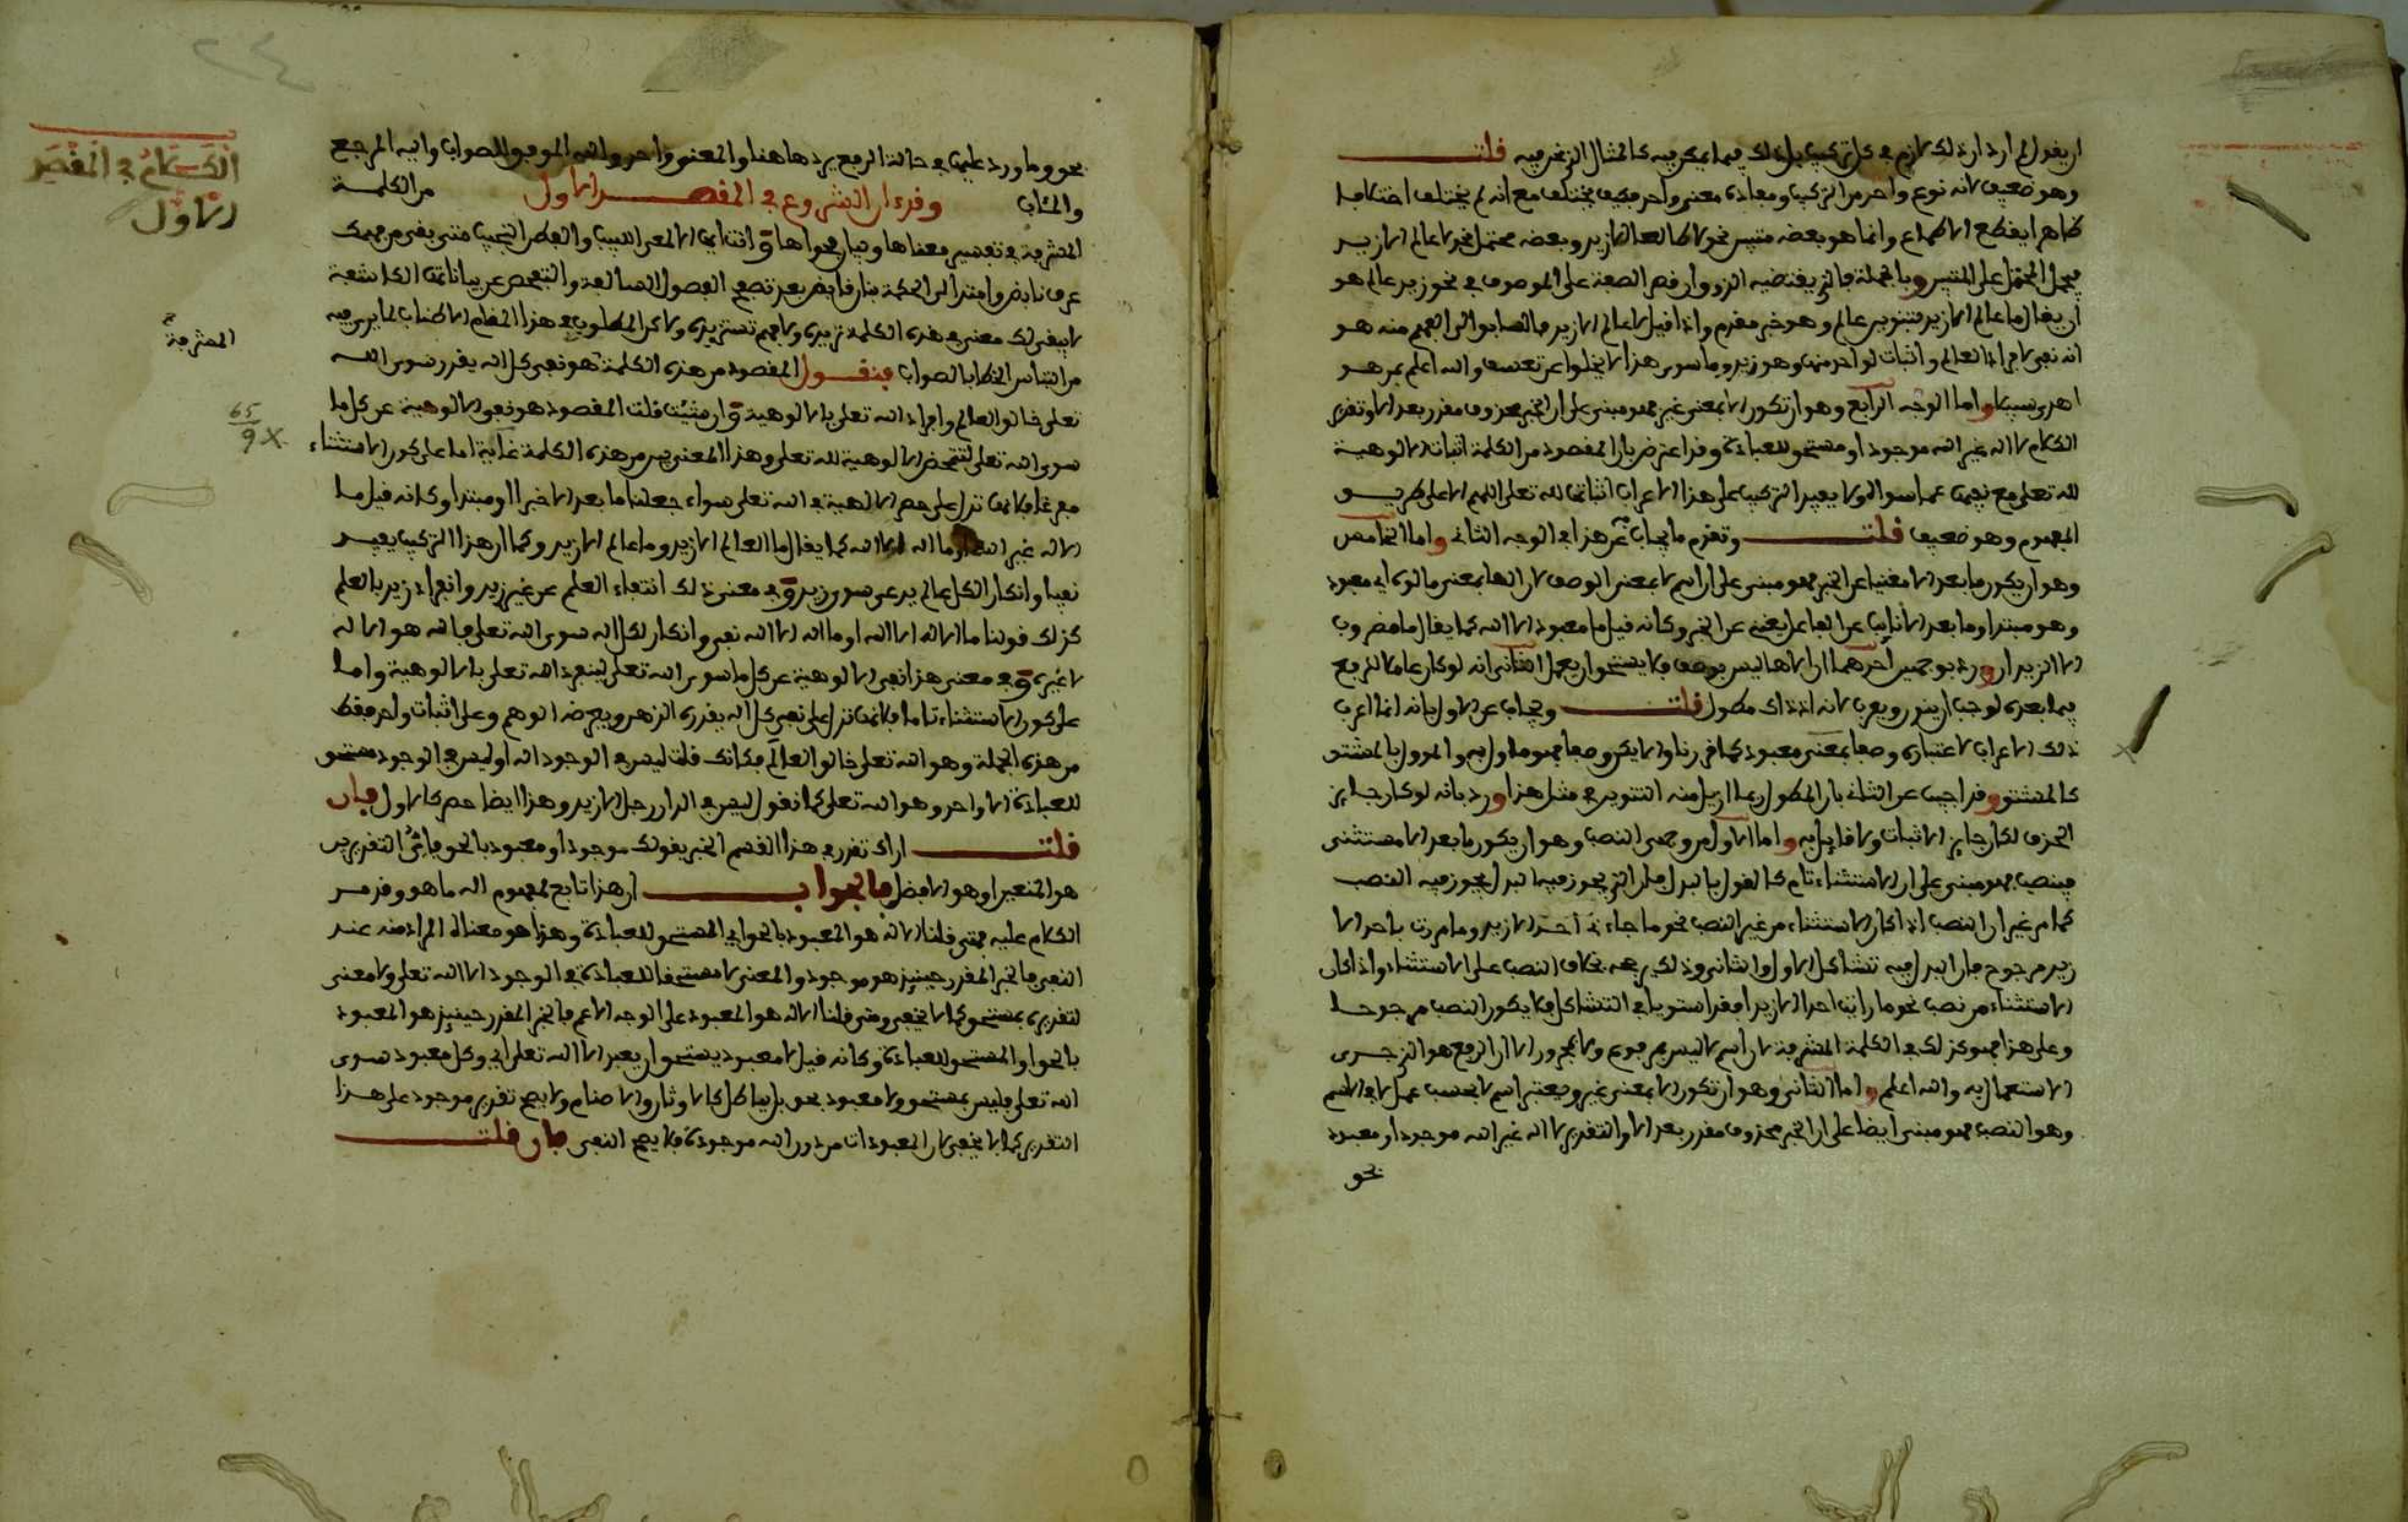 ان يقول لم ارد ان ذلك لازم في كل تركيب بل ذلك فيما يمكن فيه كالمثال الذي نحن فيه قلت
وهو ضعيف لانه نوع واحد من التركيب ومفاده معنى واحد فكيف يختلف مع انه لم يختلف اختلافا
ظاهرا يقطع الاطماع وانما هو بعضه متبين نحو لا طالعا الا زيد وبعضه محتمل نحو لا عالم الا زيد
فيحمل المحتمل على المتبين وبالجملة فالذي يقتضيه الذوق ان قصر الصفة على الموصوف في نحو زيد عالم هو
ان يقال ما عالم الا زيد بتنوين عالم وهو خبر مقدم واذا قيل لا عالم الا زيد فالسابق الى الفهم منه هو
انه نفي لافراد العالم واثبات لواحد منها وهو زيد وما سوى هذا لا يخلوا عن تعسف والله اعلم بمن هو
اهدى سبيلا واما الوجه الرابع وهو ان تكون الا بمعنى غير فهو مبني على ان الخبر محذوف مقدر بعد الا وتقدير
الكلام لا اله غير الله موجود او مستحق للعبادة وقد اعترض بان المقصود من الكلمة اثبات الالوهية
لله تعلى مع نفيها عما سواه ولا يفيد التركيب على هذا الاعراب اثباتها لله تعلى اللهم الا على طريق
المفهوم وهو ضعيف قلت وتقدم ما يجاب به عن هذا في الوجه الثاني واما الخامس
وهو ان يكون ما بعد الا مغنيا عن الخبر فهو مبني على ان اسم لا بمعنى الوصف لان الها بمعنى مالوه اي معبود
وهو مبتدا وما بعد الا نايبا عن الفاعل يغني عن الخبر وكانه قيل ما معبود الا الله كما يقال ما مضروب
الا الزيدان ورد بوجهين احدهما ان الاها ليس بوصف فلا يستحق ان يعمل الثاني انه لو كان عاملا الرفع
فيما بعده لوجب ان ينون ويعرب لانه اذ ذاك مطول قلت ويجاب عن الاول بانه انما اعرب
ذلك الاعراب لاعتباره وصفا بمعنى معبود كما قررنا والا يكن وصفا فهو ماول به والمؤول بالمشتق
كالمشتق وقد اجيب عن الثاني بان المطول ربما ازيل منه التنوين في مثل هذا ورد بانه لو كان جايز
الحذف لكان جايز الاثبات ولا قايل به واما الاول من وجهي النصب وهو ان يكون ما بعد الا مستثنى
فينصب فهو مبني على ان الاستثناء تام كالقول بالبدل فان الذي يجوز فيه البدل يجوز فيه النصب
كما مر غير ان النصب اذا كان الاستثناء من غير النصب نحو ما جاءني احد الا زيد وما مررت باحد الا
زيد مرجوح فان البدل فيه تشاكل الاول والثاني وذلك يرجحه بخلاف النصب على الاستثناء واذا كان
الاستثناء من نصب نحو ما رايت احدا الا زيدا فقد استويا في التشاكل فلا يكون النصب مرجوحا
وعلى هذا فهو كذلك في الكلمة المشرفة لان اسم لا ليس بمرفوع ولا مجرور الا ان الرفع هو الذي جرى
الاستعمال به والله اعلم واما الثاني وهو ان تكون الا بمعنى غير ويعتبر اسم لا بحسب عمل لا في الاسم
وهو النصب فهو مبني ايضا على ان الخبر محذوف مقدر بعد الا والتقدير لا اله غير الله موجود او معبود
نحو
٢٤
بحق وما ورد عليها في حالة الرفع يرد هاهنا والمعنى واحد والله الموفق للصواب واليه المرجع
والمئاب وقد ءان الشروع في المقصد الاول من الكلمة
الكلام في المقصد
الاول
المشرفة في تفسير معناها وبيان فحواها
لا يبقى لك معنى في هذه الكلمة تريده ولا فهم تستزيده ولاكن المطلوب في هذا المقام الاطناب لما يرى فيه
المشرفة
من التباس الخطا بالصواب فنقول المقصود من هذه الكلمة هو نفي كل اله يقدر سوى الله
تعلى خالق العالم وافراد الله تعلى بالالوهية وان شئت قلت المقصود هو نفي الالوهية عن كل ما
65
9 X
سوى الله تعلى لتتمحض الالوهية لله تعلى وهذا المعنى بين من هذه الكلمة غاية اما على كون الاستثناء
مفرغا فلانها تدل على حصر الالهية في الله تعلى سواء جعلنا ما بعد الا خبرا او مبتدا وكانه قيل ما
الاله غير الله او ما اله الا الله كما يقال ما العالم الا زيد وما عالم الا زيد وكما ان هذا التركيب يفيد
نفيا وانكارا لكل عالم يدعى سوى زيد وفي معنى ذلك انتفاء العلم عن غير زيد وانفراد زيد بالعلم
كذلك قولنا ما الاله الا الله او ما اله الا الله نفي وانكار لكل اله سوى الله تعلى فالله هو الاله
لا غيره وفي معنى هذا نفي الالوهية عن كل ما سوى الله تعلى لينفرد الله تعلى بالالوهية واما
على كون الاستثناء تاما فلانها تدل على نفي كل اله يقدره الذهن ويفرضه الوهم وعلى اثبات واحد فقط
من هذه الجملة وهو الله تعلى خالق العالم فكانك قلت ليس في الوجود اله او ليس في الوجود مستحق
للعبادة الا واحد وهو الله تعلى كما نقول ليس في الدار رجل الا زيد وهذا ايضا حصر كالاول فان
قلت اراك تقدر في هذا القسم الخبر بقولك موجود او معبود بالحق فاي التقديرين
هو المتعين او هو الافضل فالجواب ان هذا تابع لمفهوم اله ما هو وقد مر
الكلام عليه فمتى قلنا الاله هو المعبود بالحق اي المستحق للعبادة وهذا هو معناه المراد منه عند
النفي فالخبر المقدر حينئذ هو موجود والمعنى لا مستحقا للعبادة في الوجود الا الله تعلى ولا معنى
لتقديره بمستحق كما لا يخفى ومتى قلنا الاله هو المعبود على الوجه الاعم فالخبر المقدر حينئذ هو المعبود
بالحق او المستحق للعبادة وكانه قيل لا معبود يستحق ان يعبد الا الله تعلى اي وكل معبود سوى
الله تعلى فليس بمستحق ولا معبود بحق بل بباطل كالاوثان والاصنام ولا يصح تقدير موجود على هذا
التقدير كما لا يخفى لان المعبودات من دون الله موجودة فلا يصح النفي فان قلت